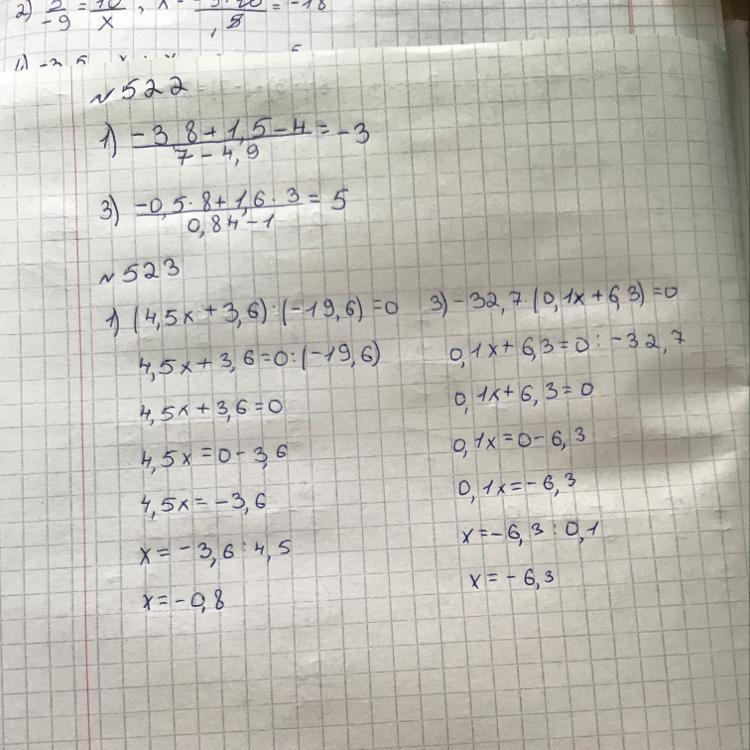 2) 5/-9 = 10/x
= -18
№522
1) (-3 8+1,5-4)/(7-4,9) = -3
3) (-0,5·8+1,6·3)/(0,84-1) = 5
№523
1) (4,5x+3,6):(-19,6)=0
4,5x+3,6=0:(-19,6)
4,5x+3,6=0
4,5x=0-3,6
4,5x=-3,6
x=-3,6:4,5
x=-0,8
3) -32,7·(0,1x+6,3)=0
0,1x+6,3=0:-32,7
0,1x+6,3=0
0,1x=0-6,3
0,1x=-6,3
x=-6,3:0,1
x=-6,3